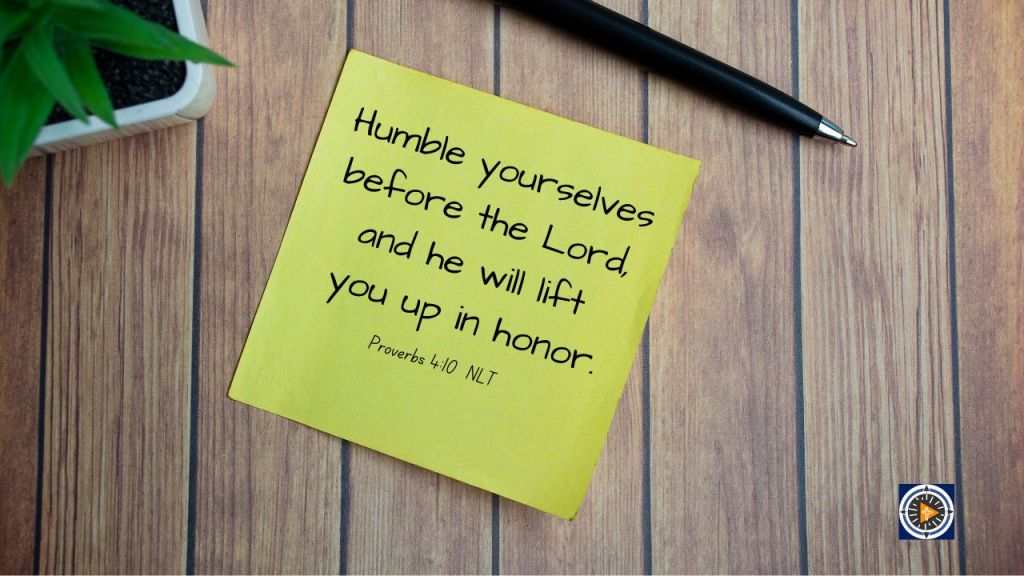 Humble yourselves
before the Lord,
and he will lift
you up in honor.
Proverbs 4:10 NLT